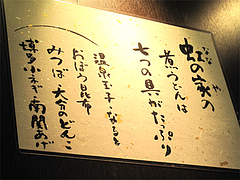 虹の家の
なな や
煮うどんは
七つの具がたっぷり
温泉玉子・なると
おぼろ昆布
みつば・大分のどんこ
博多小ネギ・南関あげ